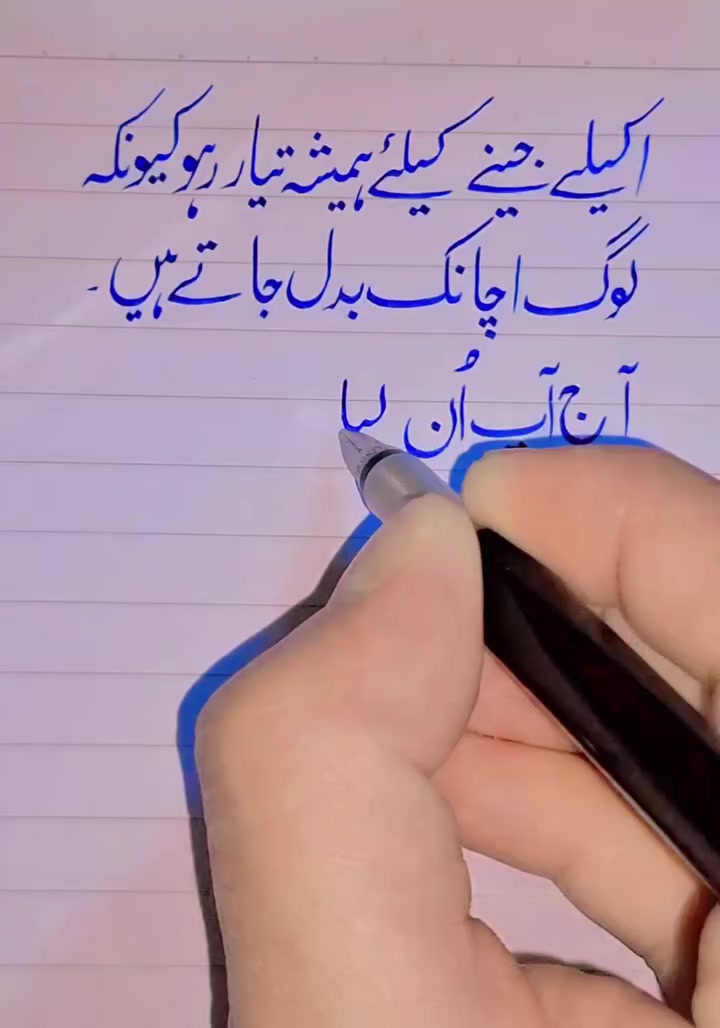 اکیلے جینے کیلئے ہمیشہ تیار رہو کیونکہ
لوگ اچانک بدل جاتے ہیں۔
آج آپ اُن